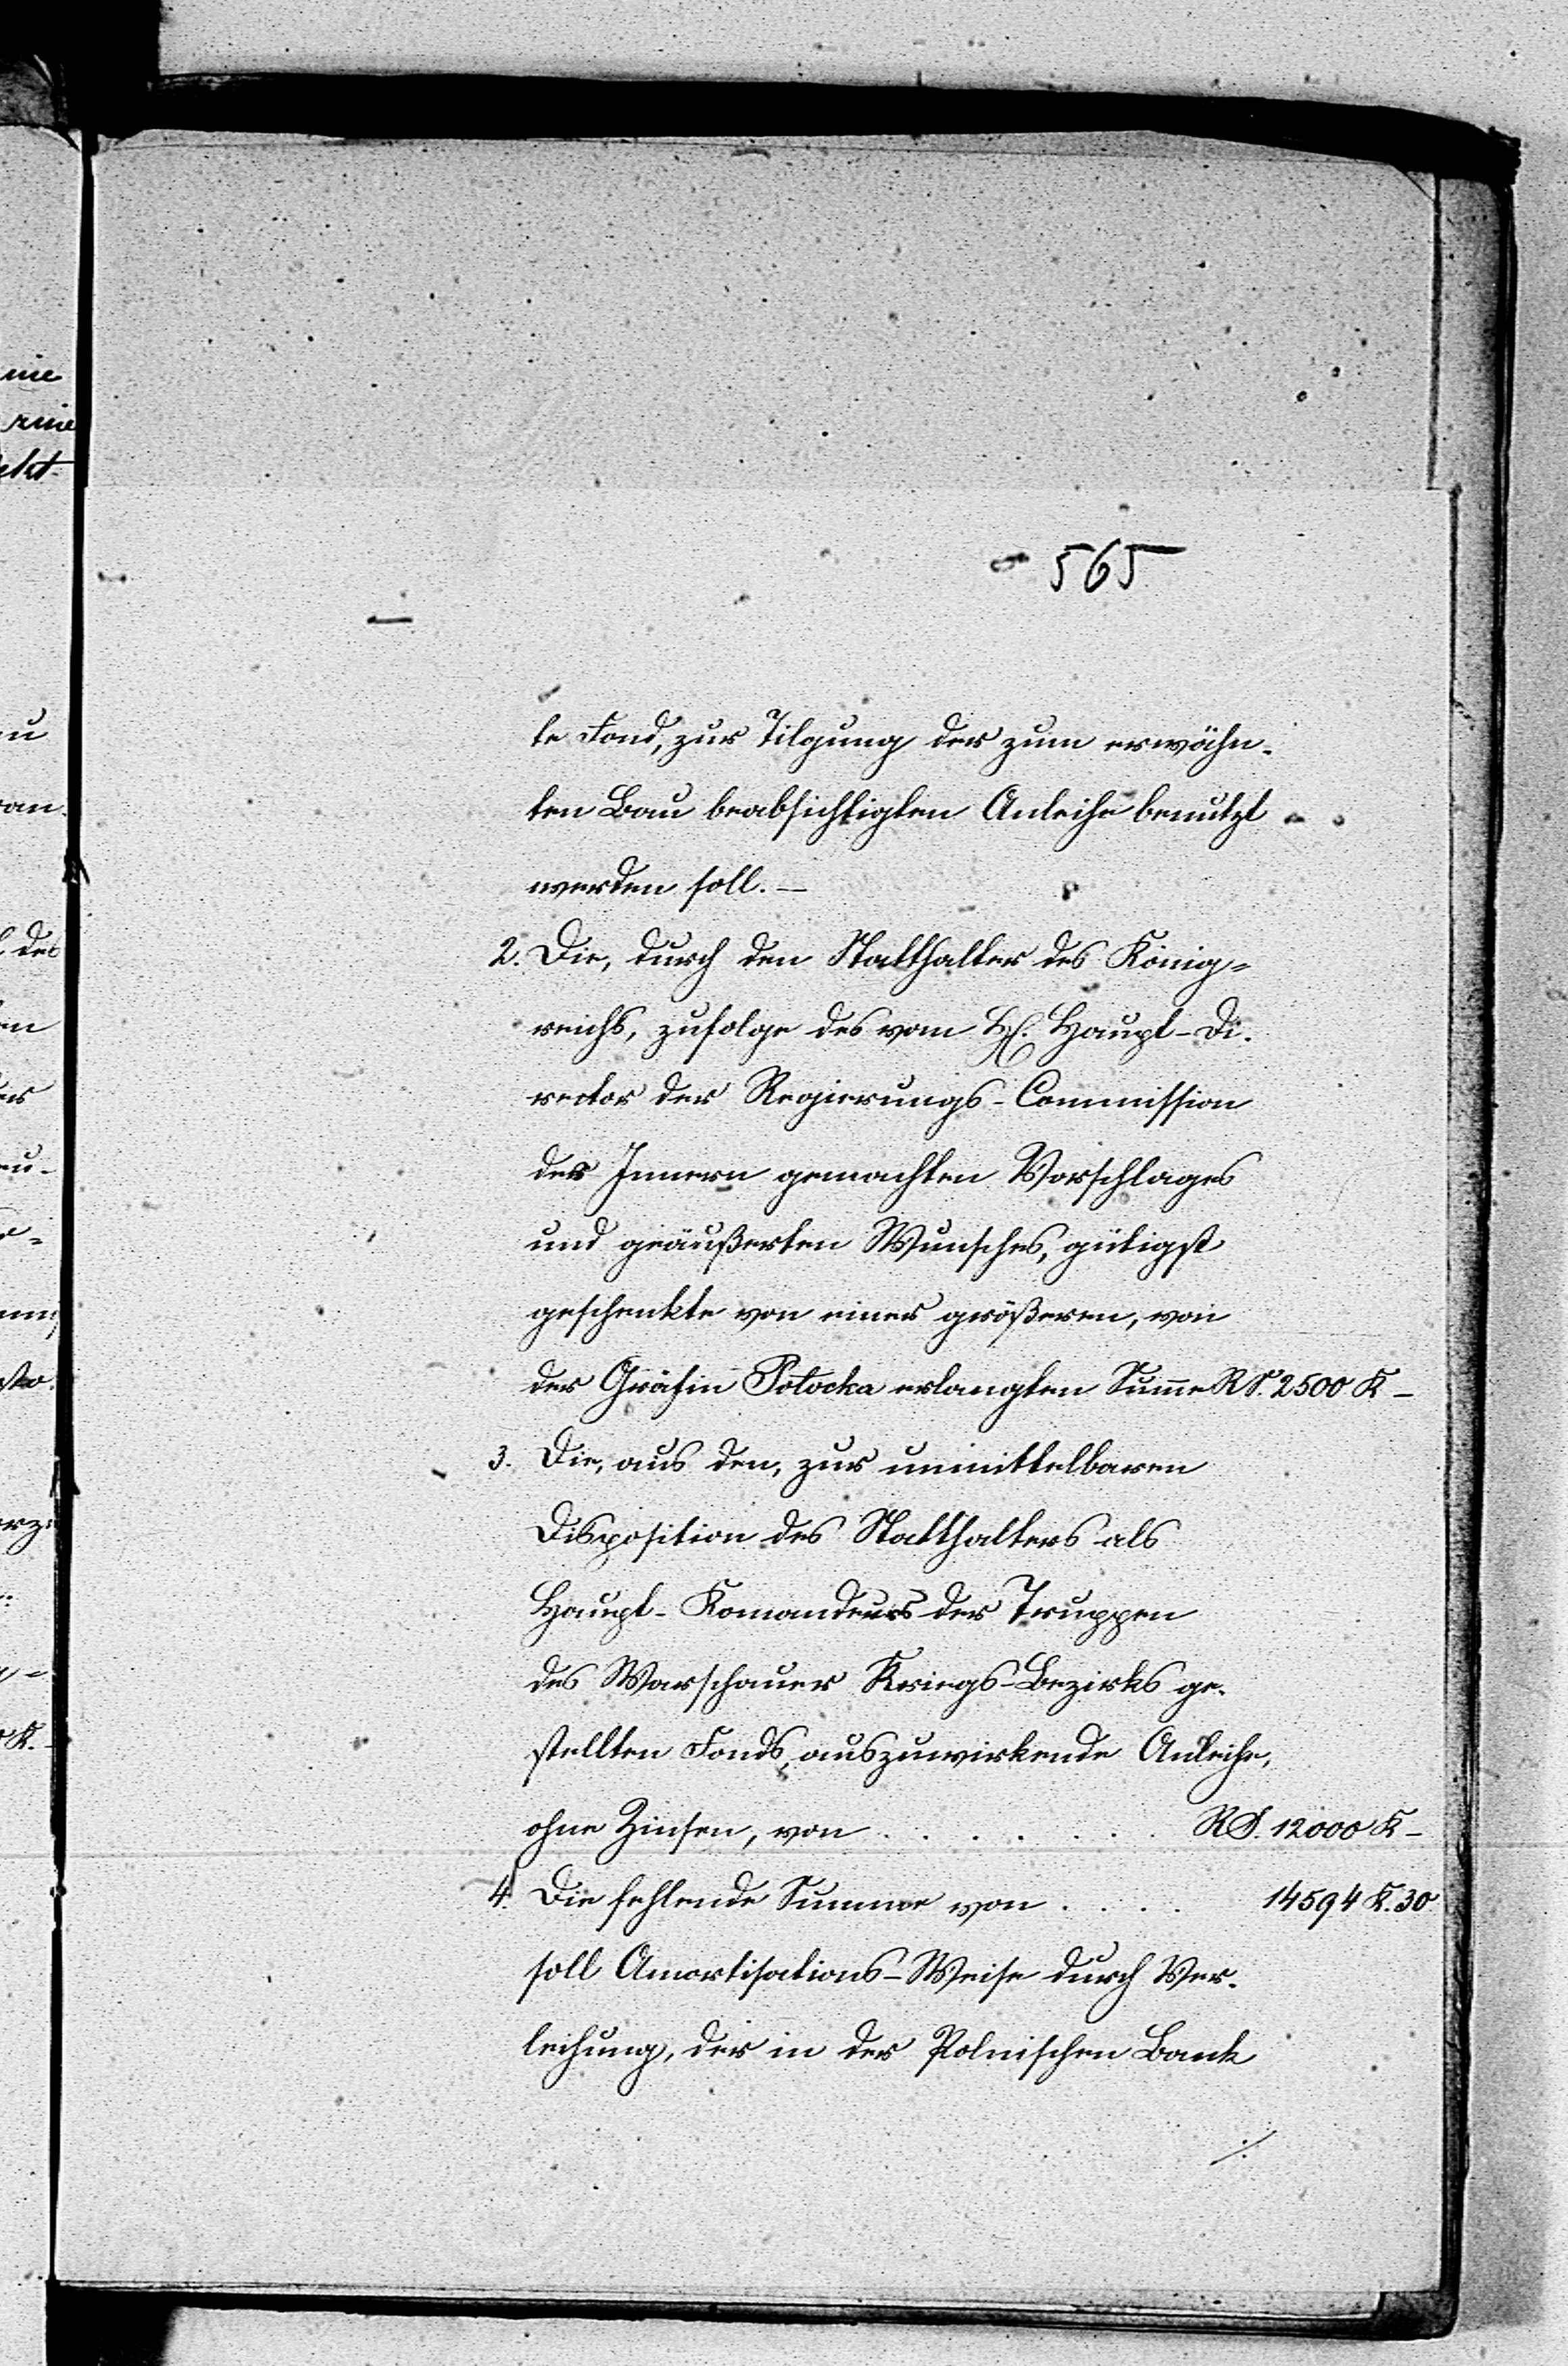 565
te Fond, zur Tilgung der zum erwähn-
ten Bau beabsichtigten Anleihe benutzt
werden soll. —
2. Die, durch den Statthalter des König=
reichs, zufolge des vom H. Haupt-Di-
rector der Regierungs-Commission
des Innern gemachten Vorschlages
und geäußerten Wunsches, gütigst
geschenkte von einer größeren, von
der Gräfin Potocka erlangten Summe RS. 2500 K —
3. Die, aus den, zur unmittelbaren
Disposition des Statthalters als
Haupt-Komandeurs der Truppen
des Warschauer Kriegs-Bezirks ge-
stellten Fonds, auszuwirkende Anleihe,
ohne Zinsen, von . . . . . . RS. 12000 K —
4. Die fehlende Summe von . . . . 14594 K. 30
soll Amortisations-Weise durch Ver-
leihung, der in der Polnischen Bank
./.